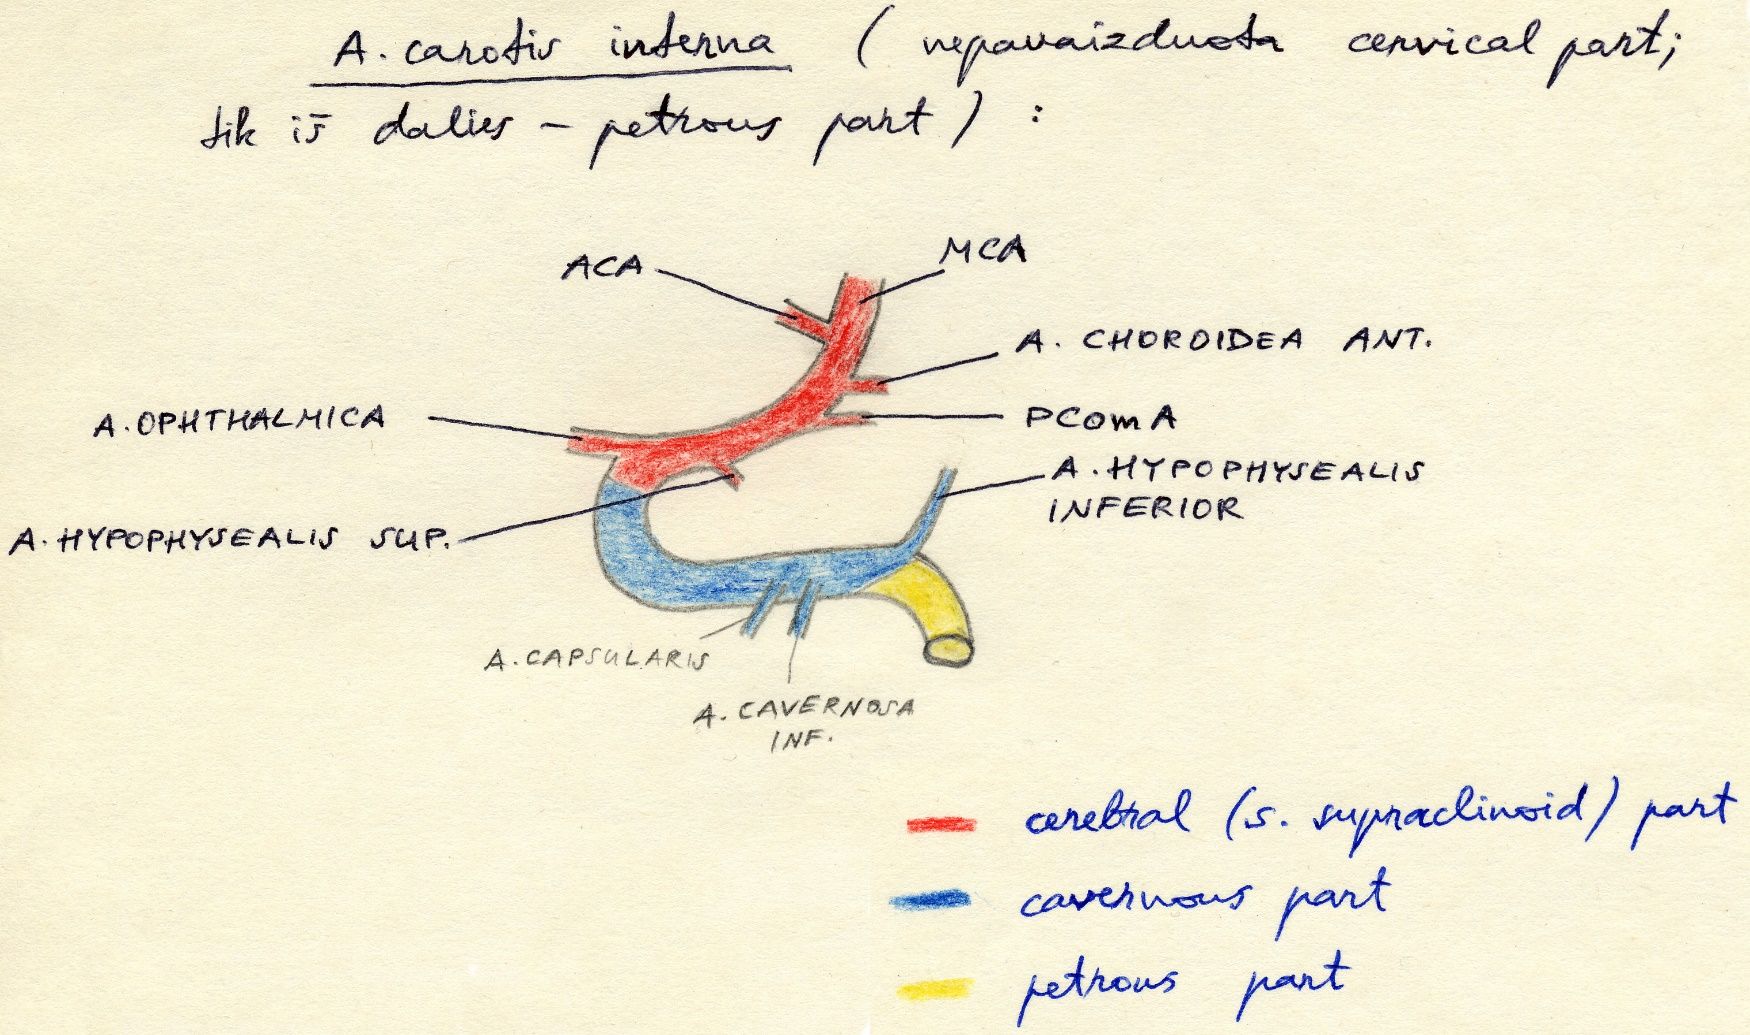 A. carotis interna (nepavaizduota cervical part;
tik iš dalies – petrous part) :
ACA
MCA
A. CHOROIDEA ANT.
A. OPHTHALMICA
PComA
A. HYPOPHYSEALIS
INFERIOR
A. HYPOPHYSEALIS SUP.
A. CAPSULARIS
A. CAVERNOSA
INF.
cerebral (s. supraclinoid) part
cavernous part
petrous part